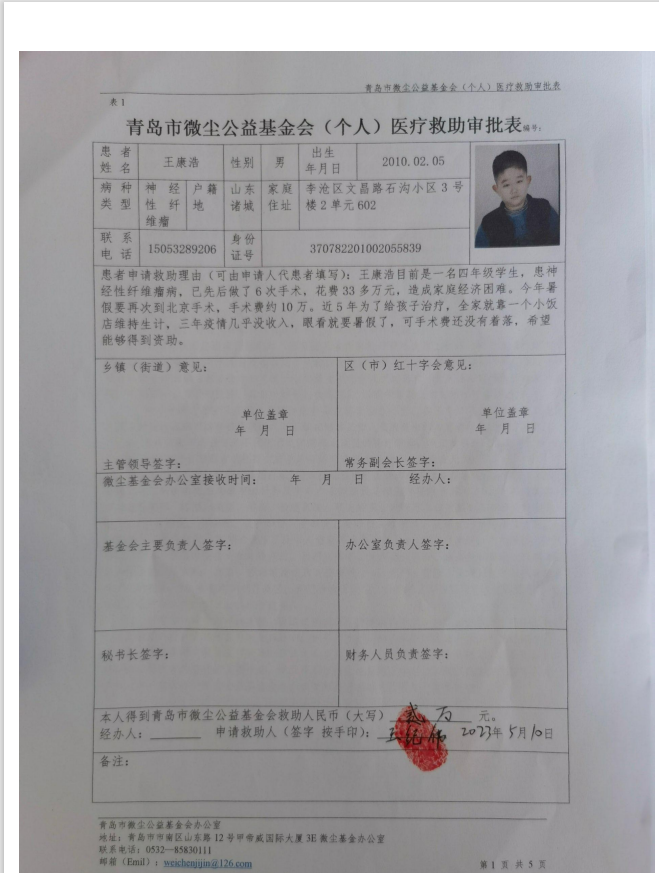 青岛市微尘公益基金会（个人）医疗救助审批表
表 1
青岛市微尘公益基金会（个人）医疗救助审批表编号：
患者姓名 王康浩 性别 男 出生年月日 2010.02.05
病种类型 神经性纤维瘤 户籍地 山东诸城 家庭住址 李沧区文昌路石沟小区 3 号楼 2 单元 602
联系电话 15053289206 身份证号 370782201002055839
患者申请救助理由（可由申请人代患者填写）：王康浩目前是一名四年级学生，患神
经性纤维瘤病，已先后做了 6 次手术，花费 33 多万元，造成家庭经济困难。今年暑
假要再次到北京手术，手术费约 10 万。近 5 年为了给孩子治疗，全家就靠一个小饭
店维持生计，三年疫情几乎没收入，眼看就要暑假了，可手术费还没有着落，希望
能够得到资助。
乡镇（街道）意见： 区（市）红十字会意见：
单位盖章 单位盖章
年 月 日 年 月 日
主管领导签字： 常务副会长签字：
微尘基金会办公室接收时间： 年 月 日 经办人：
基金会主要负责人签字： 办公室负责人签字：
秘书长签字： 财务人员负责签字：
本人得到青岛市微尘公益基金会救助人民币（大写） 贰万 元。
经办人：______ 申请救助人（签字 按手印）： 2023年5月10日
备注：
青岛市微尘公益基金会办公室
地址：青岛市市南区山东路 12 号甲帝威国际大厦 3E 微尘基金办公室
联系电话：0532—85830111
邮箱（Emil）：weichenjijin@126.com
第 1 页 共 5 页